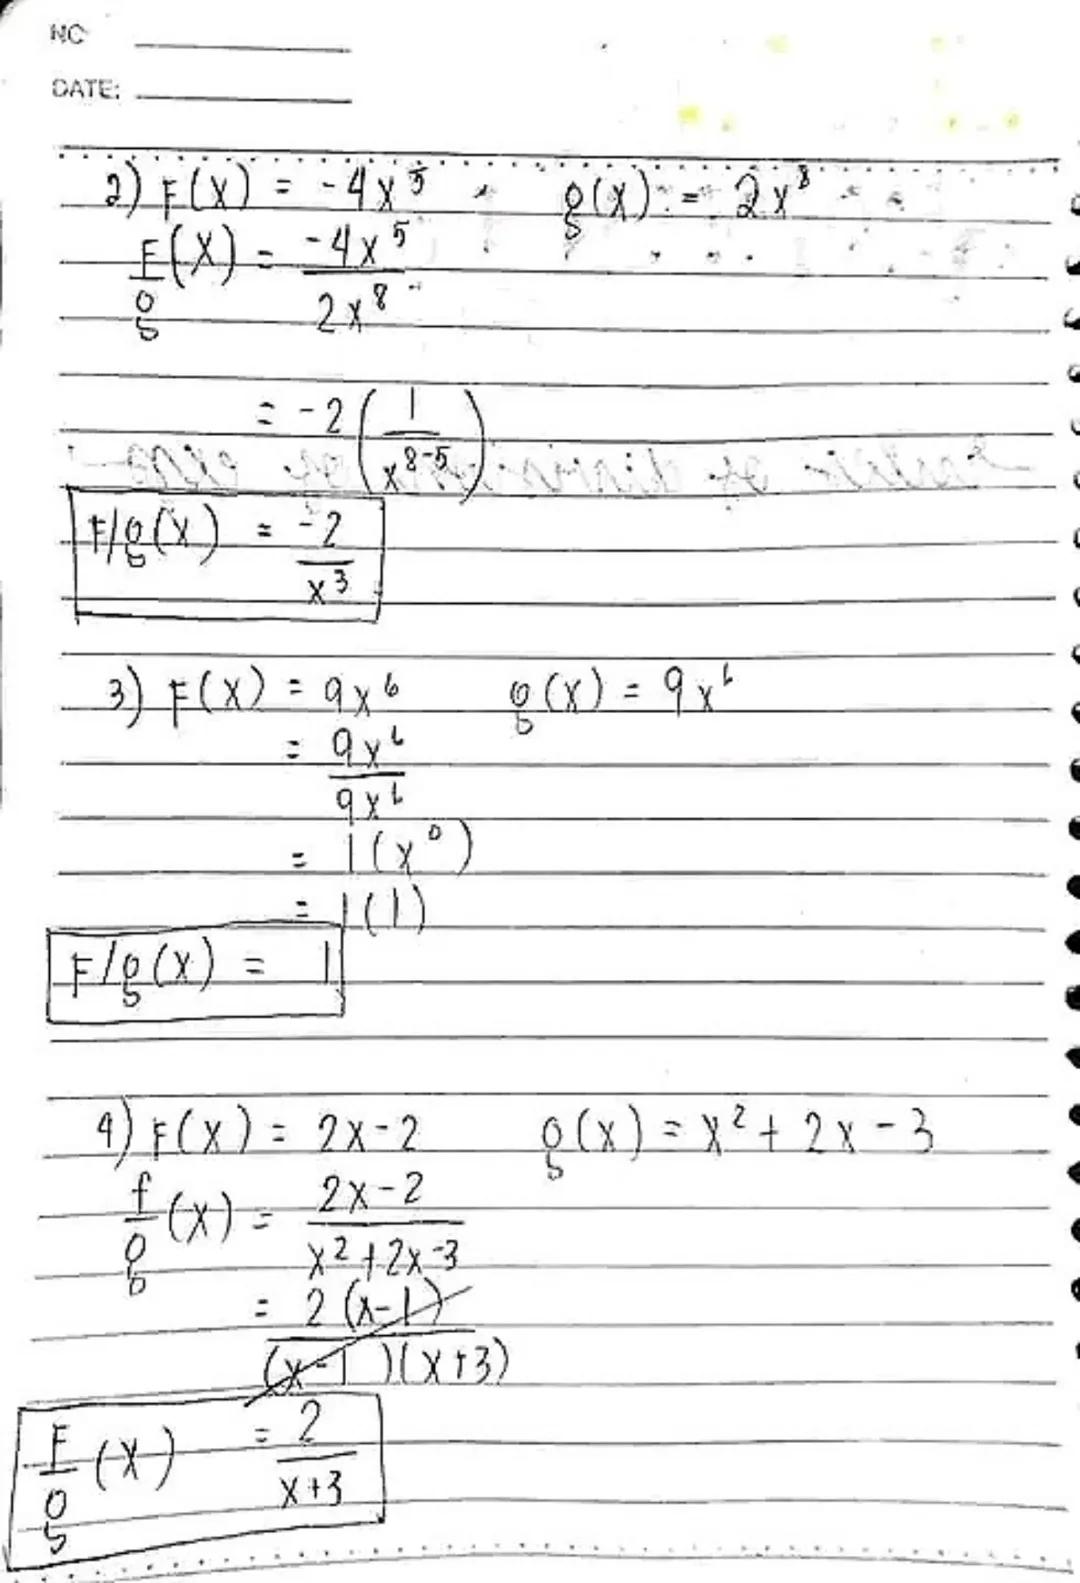 NO
DATE:
2) F(x) = -4x⁵ g(x) = 2x⁸
F/g (x) = -4x⁵ / 2x⁸
= -2 (1 / x⁸⁻⁵)
F/g(x) = -2 / x³
3) F(x) = 9x⁶ g(x) = 9x⁶
= 9x⁶ / 9x⁶
= 1(x⁰)
= 1(1)
F/g(x) = 1
4) F(x) = 2x-2 g(x) = x²+2x-3
f/g (x) = 2x-2 / x²+2x-3
= 2(x-1) / (x-1)(x+3)
F/g (x) = 2 / x+3